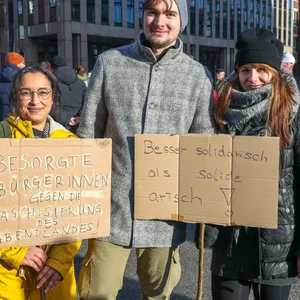 BESORGTE
BÜRGERINNEN
GEGEN DIE
FASCHISIERUNG
DES
ABENDLANDES!
Besser solidarisch
als solide
arisch !